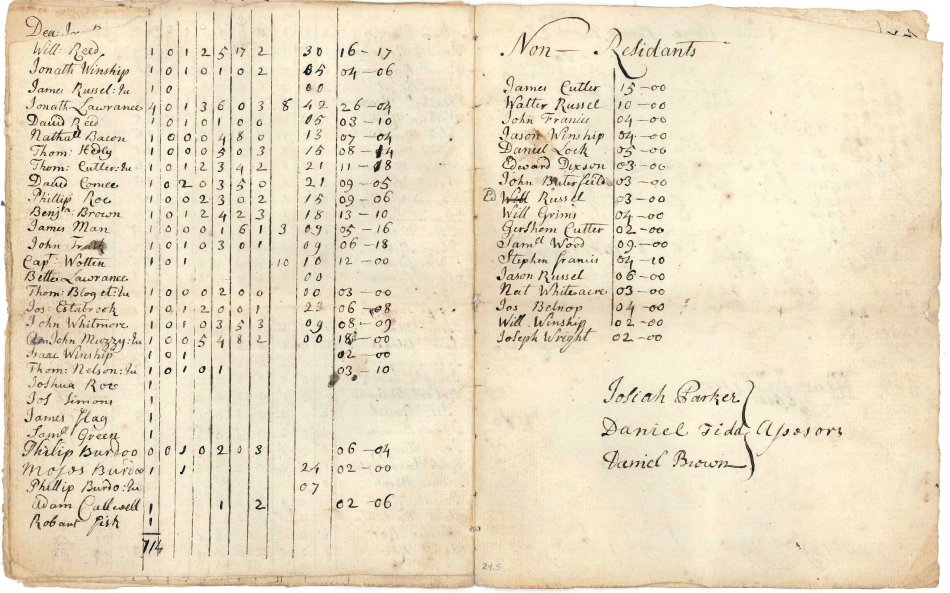 Dea:
Will: Reed 1 0 1 2 5 17 2 30 16-17
Jonath Winship 1 0 1 0 1 0 2 05 04-06
James Russel:Ju 1 0 00
Jonath Lawrance 4 0 1 3 6 0 3 8 42 26-04
David Reed 1 0 1 0 1 0 0 05 03-10
Nathall Bacon 1 0 0 0 4 8 0 13 07-04
Thom: Kedly 1 0 0 0 5 0 3 15 08-14
Thom: Cutler:Ju 1 0 1 2 3 4 2 21 11-18
David Comee 1 0 2 0 3 5 0 21 09-05
Phillip Roc 1 0 0 2 3 0 2 15 09-06
Benja: Brown 1 0 1 2 4 2 3 18 13-10
James Man 1 0 0 0 1 6 1 3 09 05-16
John 1 0 1 0 3 0 1 09 06-18
Capt. Wotten 1 0 1 10 10 12-00
Bette Lawrance 00
Thom: Bloget:Ju 1 0 0 0 2 0 0 00 03-00
Jos: Estabrook 1 0 1 2 0 0 1 23 06-08
John Whitmore 1 0 1 0 3 5 3 09 08-09
John Muzzy:Ju 1 0 0 5 4 8 2 00 18-00
Isaac Winship 1 0 1 02-00
Thom: Nelson:Ju 1 0 1 0 1 03-10
Joshua Roc 1
Jos Simons 1
James flag 1
Saml Green 1
Philip Burdoo 0 0 1 0 2 0 3 06-04
Moses Burdoo 1 1 24 02-00
Phillip Burdo:Ju 07
Adam Callwell 1 1 2 02-06
Robart fisk 1
714
Non-Residants
James Cutler 15-00
Walter Russel 10-00
John Francis 04-00
Jason Winship 04-00
Daniel Lock 05-00
Edward Dixson 03-00
John Buterfield 03-00
Ed Will Russel 03-00
Will Grims 04-00
Gershom Cutter 02-00
Samel Wood 09-00
Stephen francis 04-10
Jason Russel 06-00
Nat Whiteacre 03-00
Jos Belnop 04-00
Will. Winship 02-00
Joseph Wright 02-00
Josiah Parker
Daniel Tidd Asesors
Daniel Brown
24.5